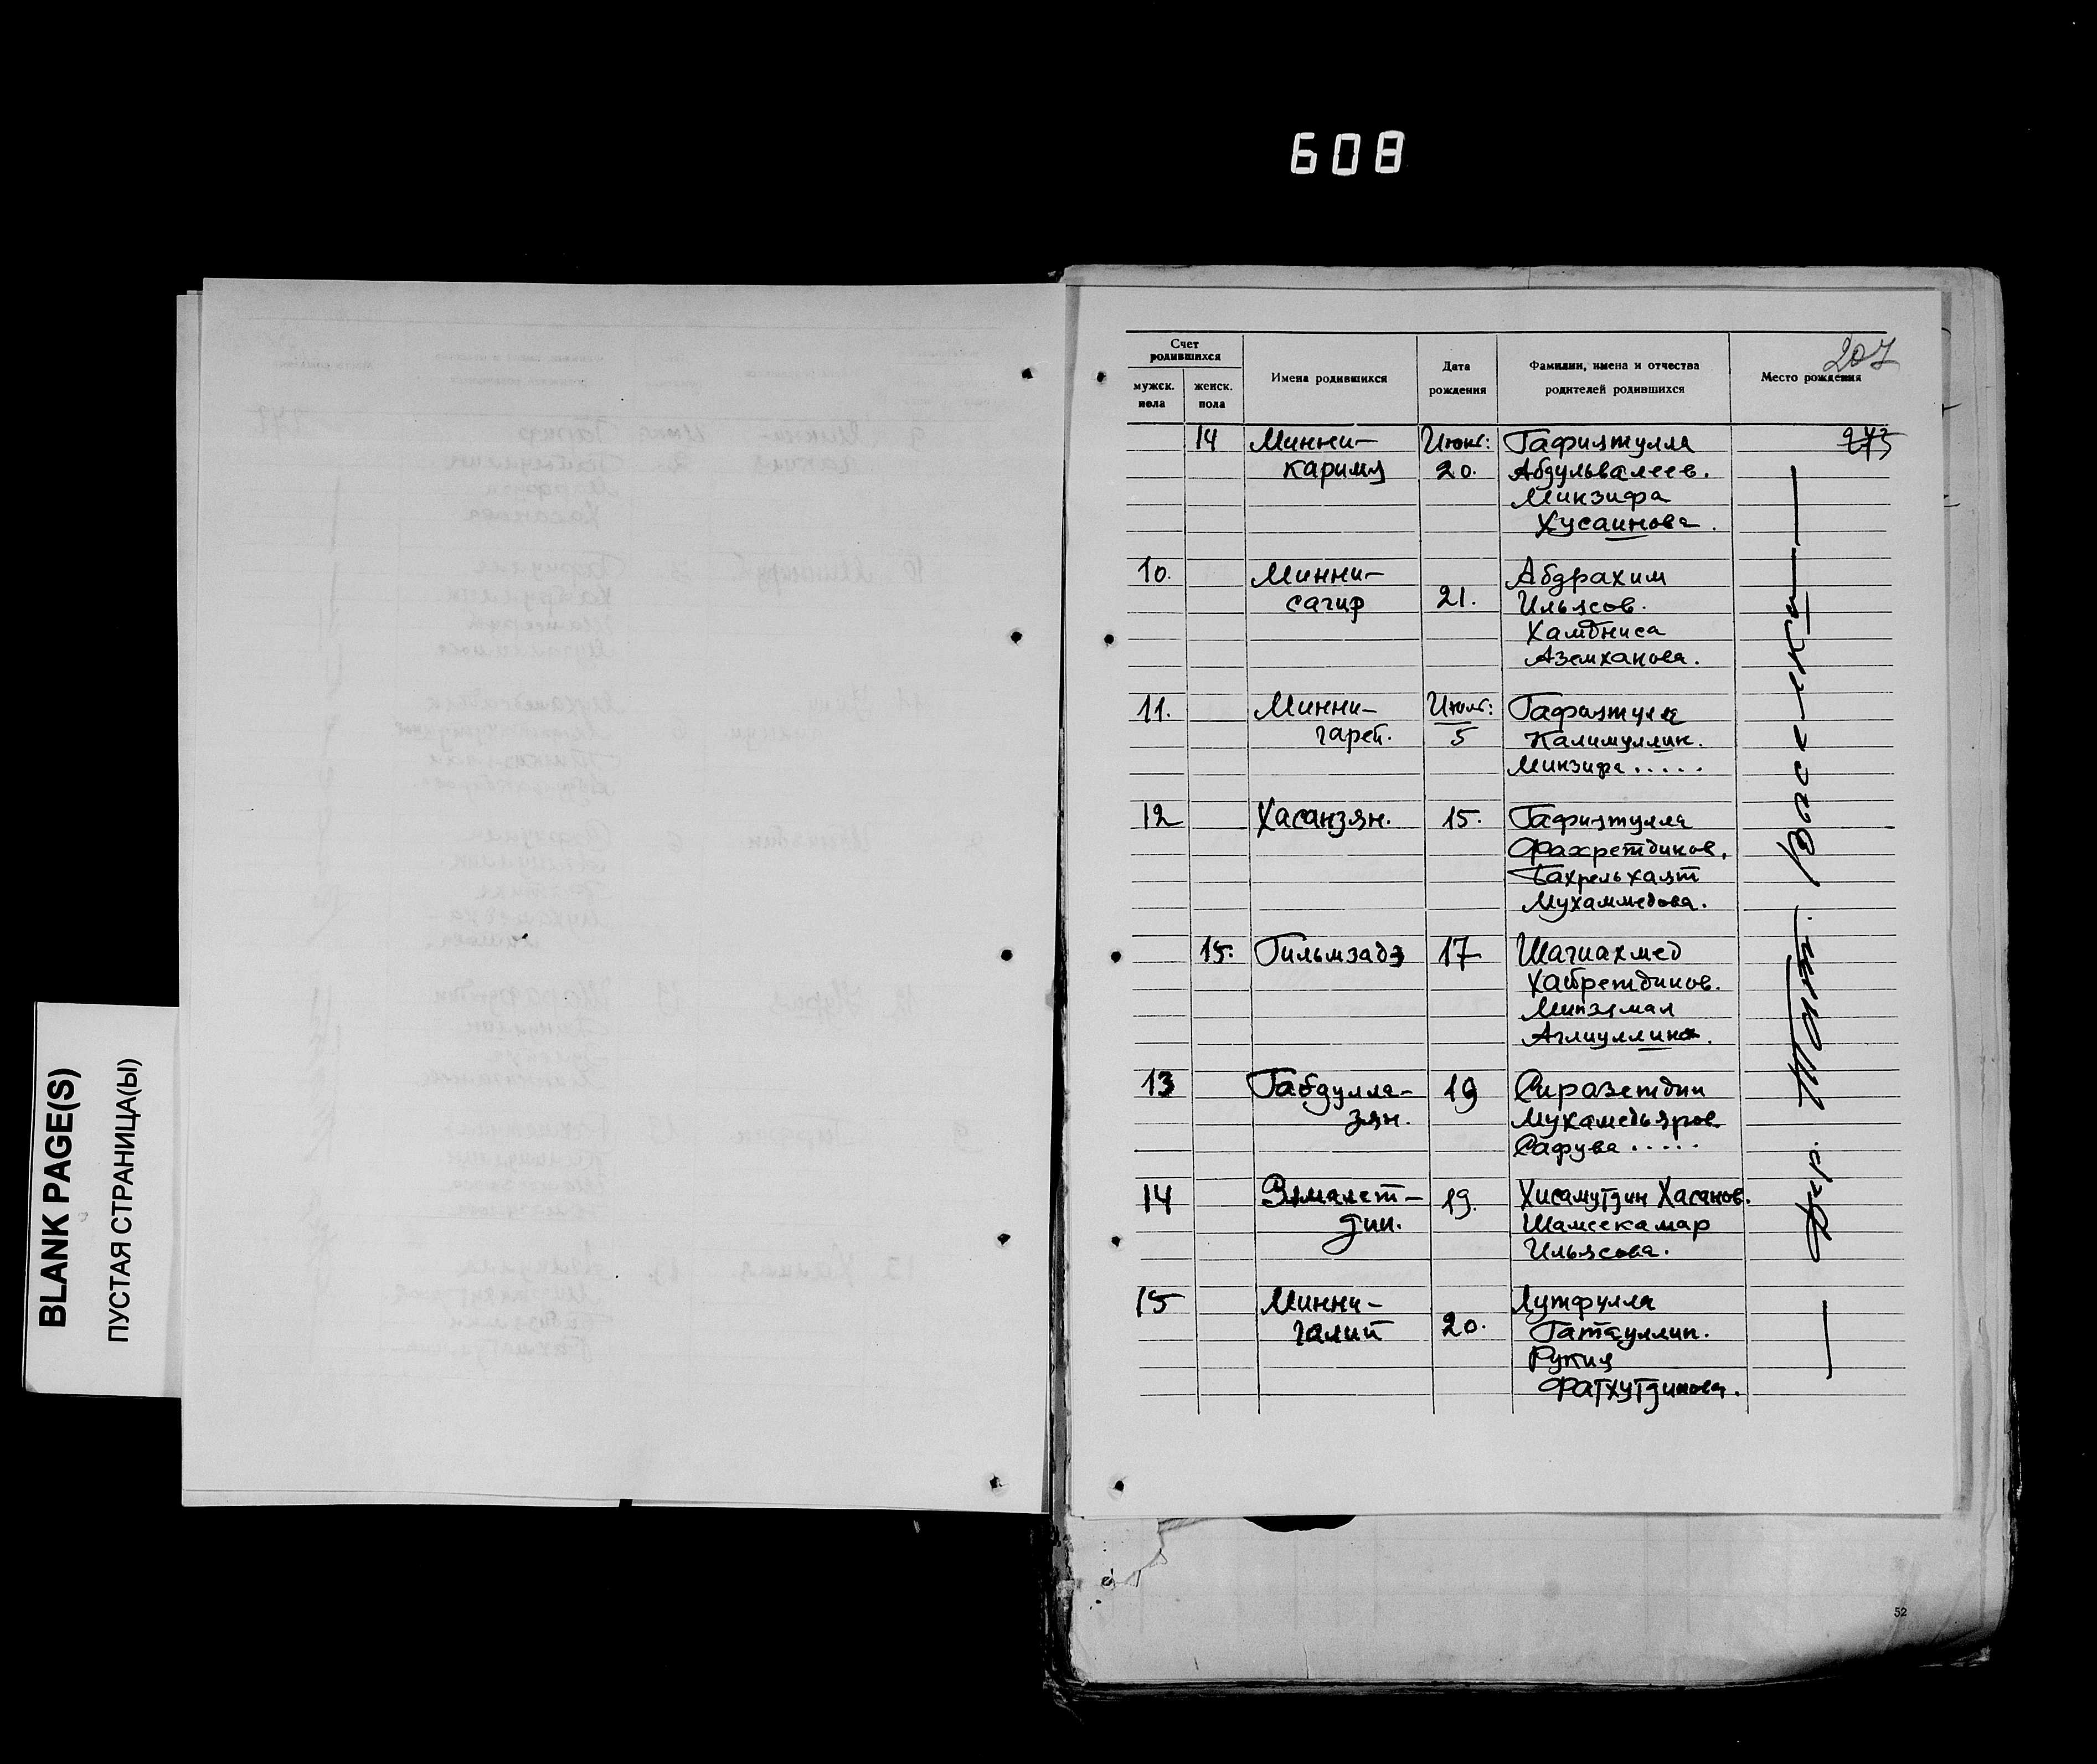 608
BLANK PAGE(S)
ПУСТАЯ СТРАНИЦА(Ы)
207
Счет родившихся
мужск. пола
женск. пола
Имена родившихся
Дата рождения
Фамилии, имена и отчества родителей родившихся
Место рождения
14 Минни- Июнь: Гафиятулла
карима 20. Абдульвалеев.
Минзифа
Хусаинова.
10. Минни- Абдрахим
сагир 21. Ильясов.
Хамбниса
Аземханова.
11. Минни- Июль: Гафиятулла
гарей. 5 Калимуллин.
Минзифа.....
12 Хасанзян. 15. Гафиятулла
Фахретдинов.
Бахрельхаят
Мухаммедова.
15. Гильмзадэ 17 Шагиахмед
Хайретдинов.
Минзямал
Аглиуллина.
13 Габдулла- 19 Сиразетдин
зян. Мухамедьяров.
Сафува.....
14 19. Хисамутдин Хасанов.
дин. Шамсекамар
Ильясова.
15 Минни- Лутфулла
галий 20. Гатауллин.
Рукия
Фатхутдинова.
52